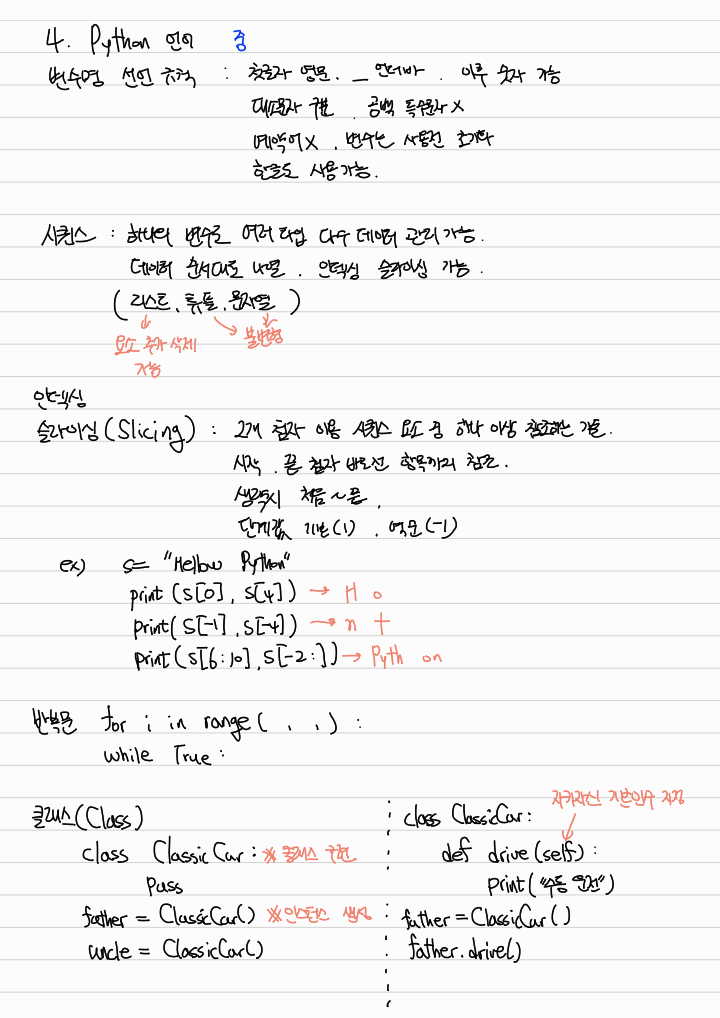 4. Python 언어 중
변수명 선언 규칙 : 첫글자 영문, _ 언더바. 이후 숫자 가능
대소문자 구분, 공백 특수문자 X
예약어 X, 변수는 사용전 초기화
한글도 사용가능.
시퀀스 : 하나의 변수로 여러 타입 다수 데이터 관리 가능.
데이터 순서대로 나열, 인덱싱 슬라이싱 가능.
(리스트, 튜플, 문자열)
요소 추가 삭제 불변형
가능
인덱싱
슬라이싱(Slicing) : 2개 첨자 이용 시퀀스 요소 중 하나 이상 참조하는 기술.
시작, 끝 첨자 바로전 항목까지 참조.
생략시 처음~끝,
단계값 기본(1), 역순(-1)
ex) s= "Hellow Python"
print (s[0], s[4]) → H o
print(s[-1], s[-4]) → n t
print(s[6:10], s[-2:]) → Pyth on
반복문 for i in range( , , ) :
while True :
클래스(Class)
class ClassicCar : ※ 클래스 구현
Pass
father = ClassicCar() ※ 인스턴스 생성
uncle = ClassicCar()
자기자신 기본인수 지정
class ClassicCar:
def drive(self) :
print("수동 운전")
father = ClassicCar()
father.drive()